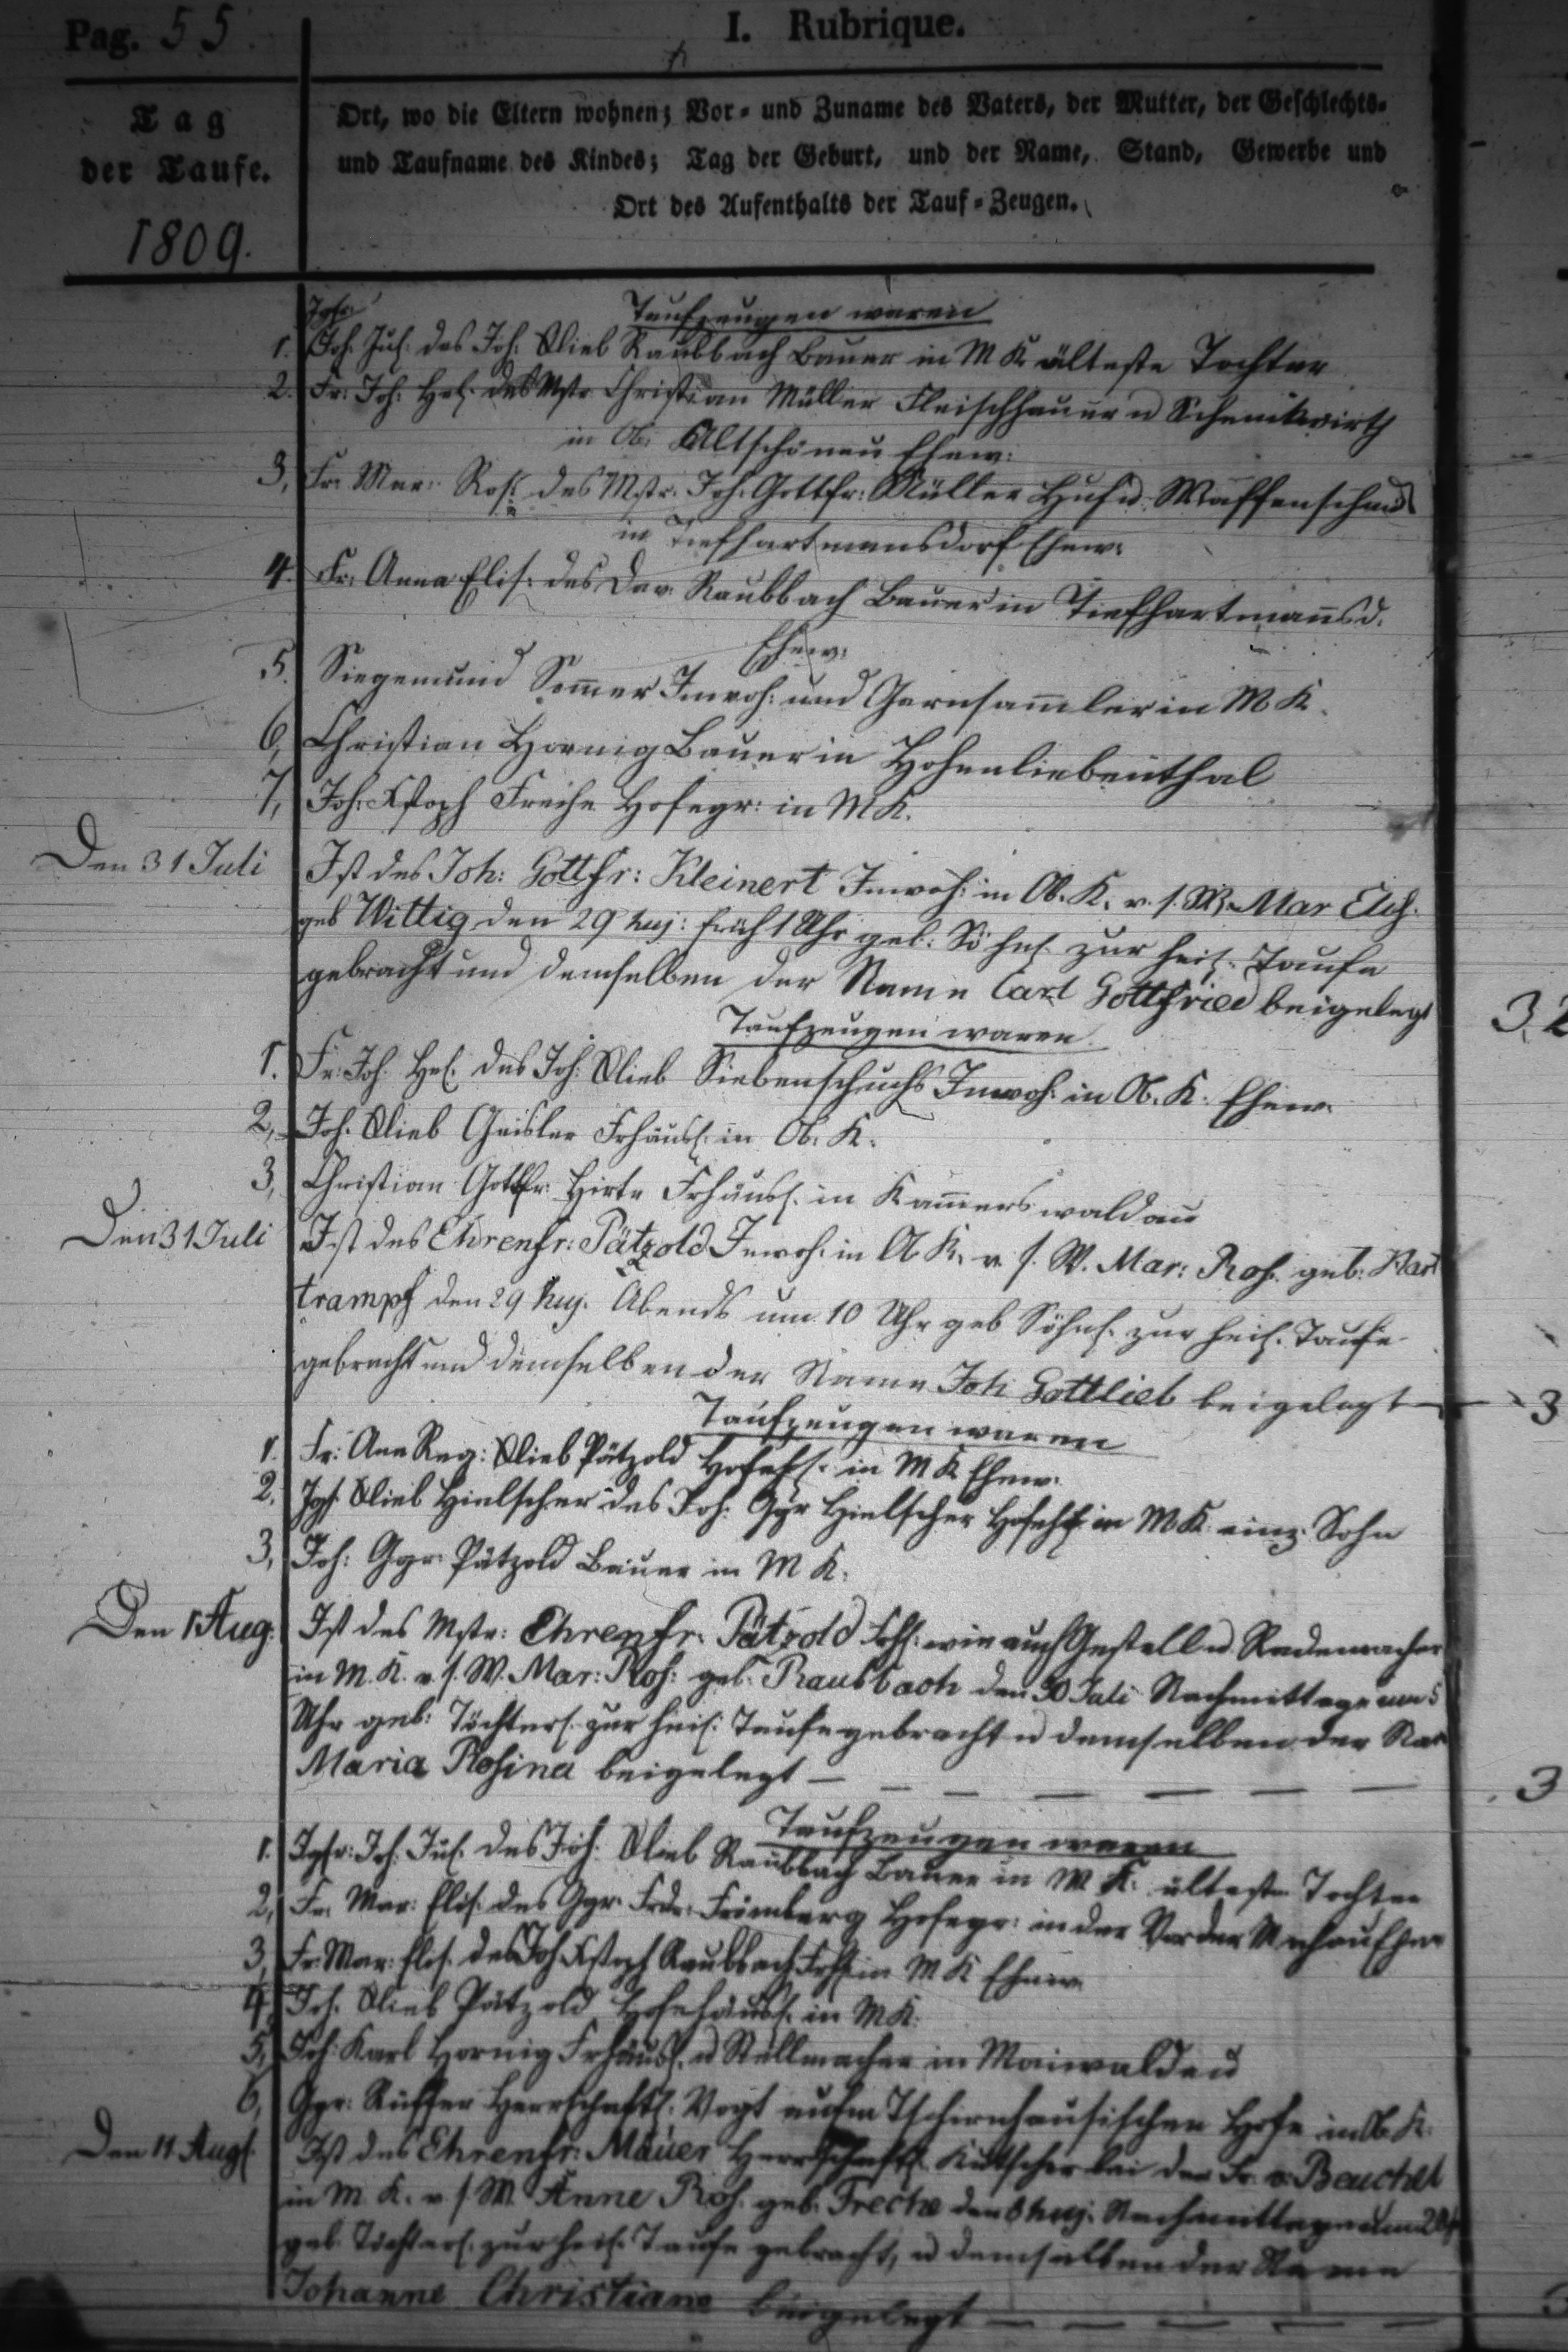 Pag. 55.
I. Rubrique.
Tag
der Taufe.
1809.
Ort, wo die Eltern wohnen; Vor- und Zuname des Vaters, der Mutter, der Geschlechts-
und Taufname des Kindes; Tag der Geburt, und der Name, Stand, Gewerbe und
Ort des Aufenthalts der Tauf-Zeugen.
Taufzeugen waren
Jgfr.
1. Joh. Jul. des Joh. Glieb Raubbach Bauer in M K. älteste Tochter
2. Fr. Joh. Hel. des Mstr Christian Müller Fleischhauer u Schenkwirth
in Ob. Altschönau Ehew:
3, Fr. Mar. Ros. des Mstr. Joh. Gottfr: Müller Huf u. Waffenschmid
in Tiefhartmansdorf Ehew:
4. Fr. Anna Elis: des Dav. Raubbach Bauer in Tiefhartmañsd.
Ehew:
5. Siegemund Som̃er Inwoh: und Garnsam̃ler in M K.
6, Christian Hornig Bauer in Hohenliebenthal
7, Joh: Kstoph Freche Hofegr: in M K.
Den 31 Juli Ist des Joh: Gottfr: Kleinert Inwoh: in Ob. K. v. s. W. Mar Elis.
geb Wittig den 29 huj: früh 1 Uhr geb: Söhnl. zur heil. Taufe
gebracht und demselben der Name Carl Gottfried beigelegt
Taufzeugen waren
1. Fr. Joh. Hel. des Joh. Glieb Siebenschuhs Inwoh. in Ob. K. Ehew.
2, Joh. Glieb Geisler Frhäusl. in Ob. K.
3, Christian Gottfr. Hirte Frhäusl. in Kam̃erswaldau
Den 31 Juli Ist des Ehrenfr: Pätzold Inwoh: in Ob K. v. s. W. Mar: Ros. geb: Hart
trampf den 29 huj. Abends um 10 Uhr geb Söhnl. zur heil. Taufe
gebracht und demselben der Name Joh Gottlieb beigelegt
3
Taufzeugen waren
1. Fr. Ann Reg: Glieb Pätzold in M K Ehew:
2, Jgs. Glieb Hielscher des Joh: Ggr Hielscher in M K. einz. Sohn
3, Joh: Ggr. Pätzold Bauer in M K.
Den 1 Aug: Ist des Mstr: Ehrenfr. Pätzold wie auch Gestell u Rademacher
in M. K. v. s. W. Mar: Ros: geb. Raubbach den 30 Juli Nachmittage um 5
Uhr geb: Töchterl. zur heil. Taufe gebracht u demselben der
Maria Rosina beigelegt
3
Taufzeugen waren
1. Jgfr: Joh. Jul. des Joh. Glieb Raubbach Bauer in M K. älteste Tochter
2, Fr. Mar: Elis. des Ggr. Frdr. Frömberg Hofegr: in der Vorder Ehew
3, Fr. Mar: Elis. des Joh Kstoph Raubbach in M K Ehew.
4, Joh. Glieb Pätzold Hofehäusl. in M K.
5, Joh: Karl Hornig Frhäusl. u Stellmacher in Maiwaldau
6, Ggr: Rüffer Herrschaftl. Vogt aufm Tschirnhausischen Hofe in Ob K.
Den 11 Aug. Ist des Ehrenfr: Mauer Herrschaftl. Kutscher bei der Fr. v. Beuchel
in M. K. v. s. W. Anne Ros. geb. Freche den 8 huj. Nachmittage um 2
geb. Töchterl. zur heil. Taufe gebracht, u demselben der Name
Johanne Christiane beigelegt